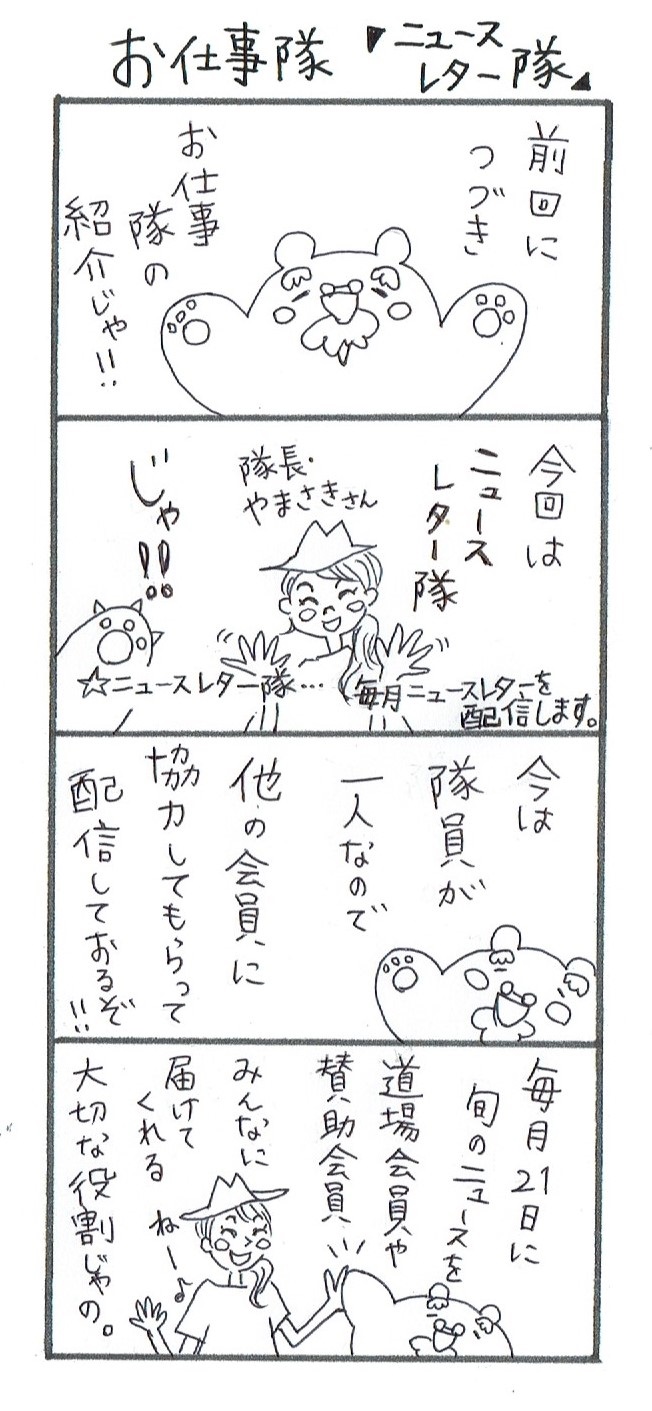 お仕事隊
▼ニュース
レター隊▲
前回に
つづき
お仕事
隊の
紹介じゃ!!
今回は
ニュース
レター隊
隊長・
やまさきさん
じゃ!!
☆ニュースレター隊…
毎月ニュースレターを
配信します。
今は
隊員が
一人なので
他の会員に
協力してもらって
配信しておるぞ!!
毎月21日に
旬のニュースを
道場会員や
賛助会員
みんなに
届けて
くれる
ねー♪
大切な役割じゃの。